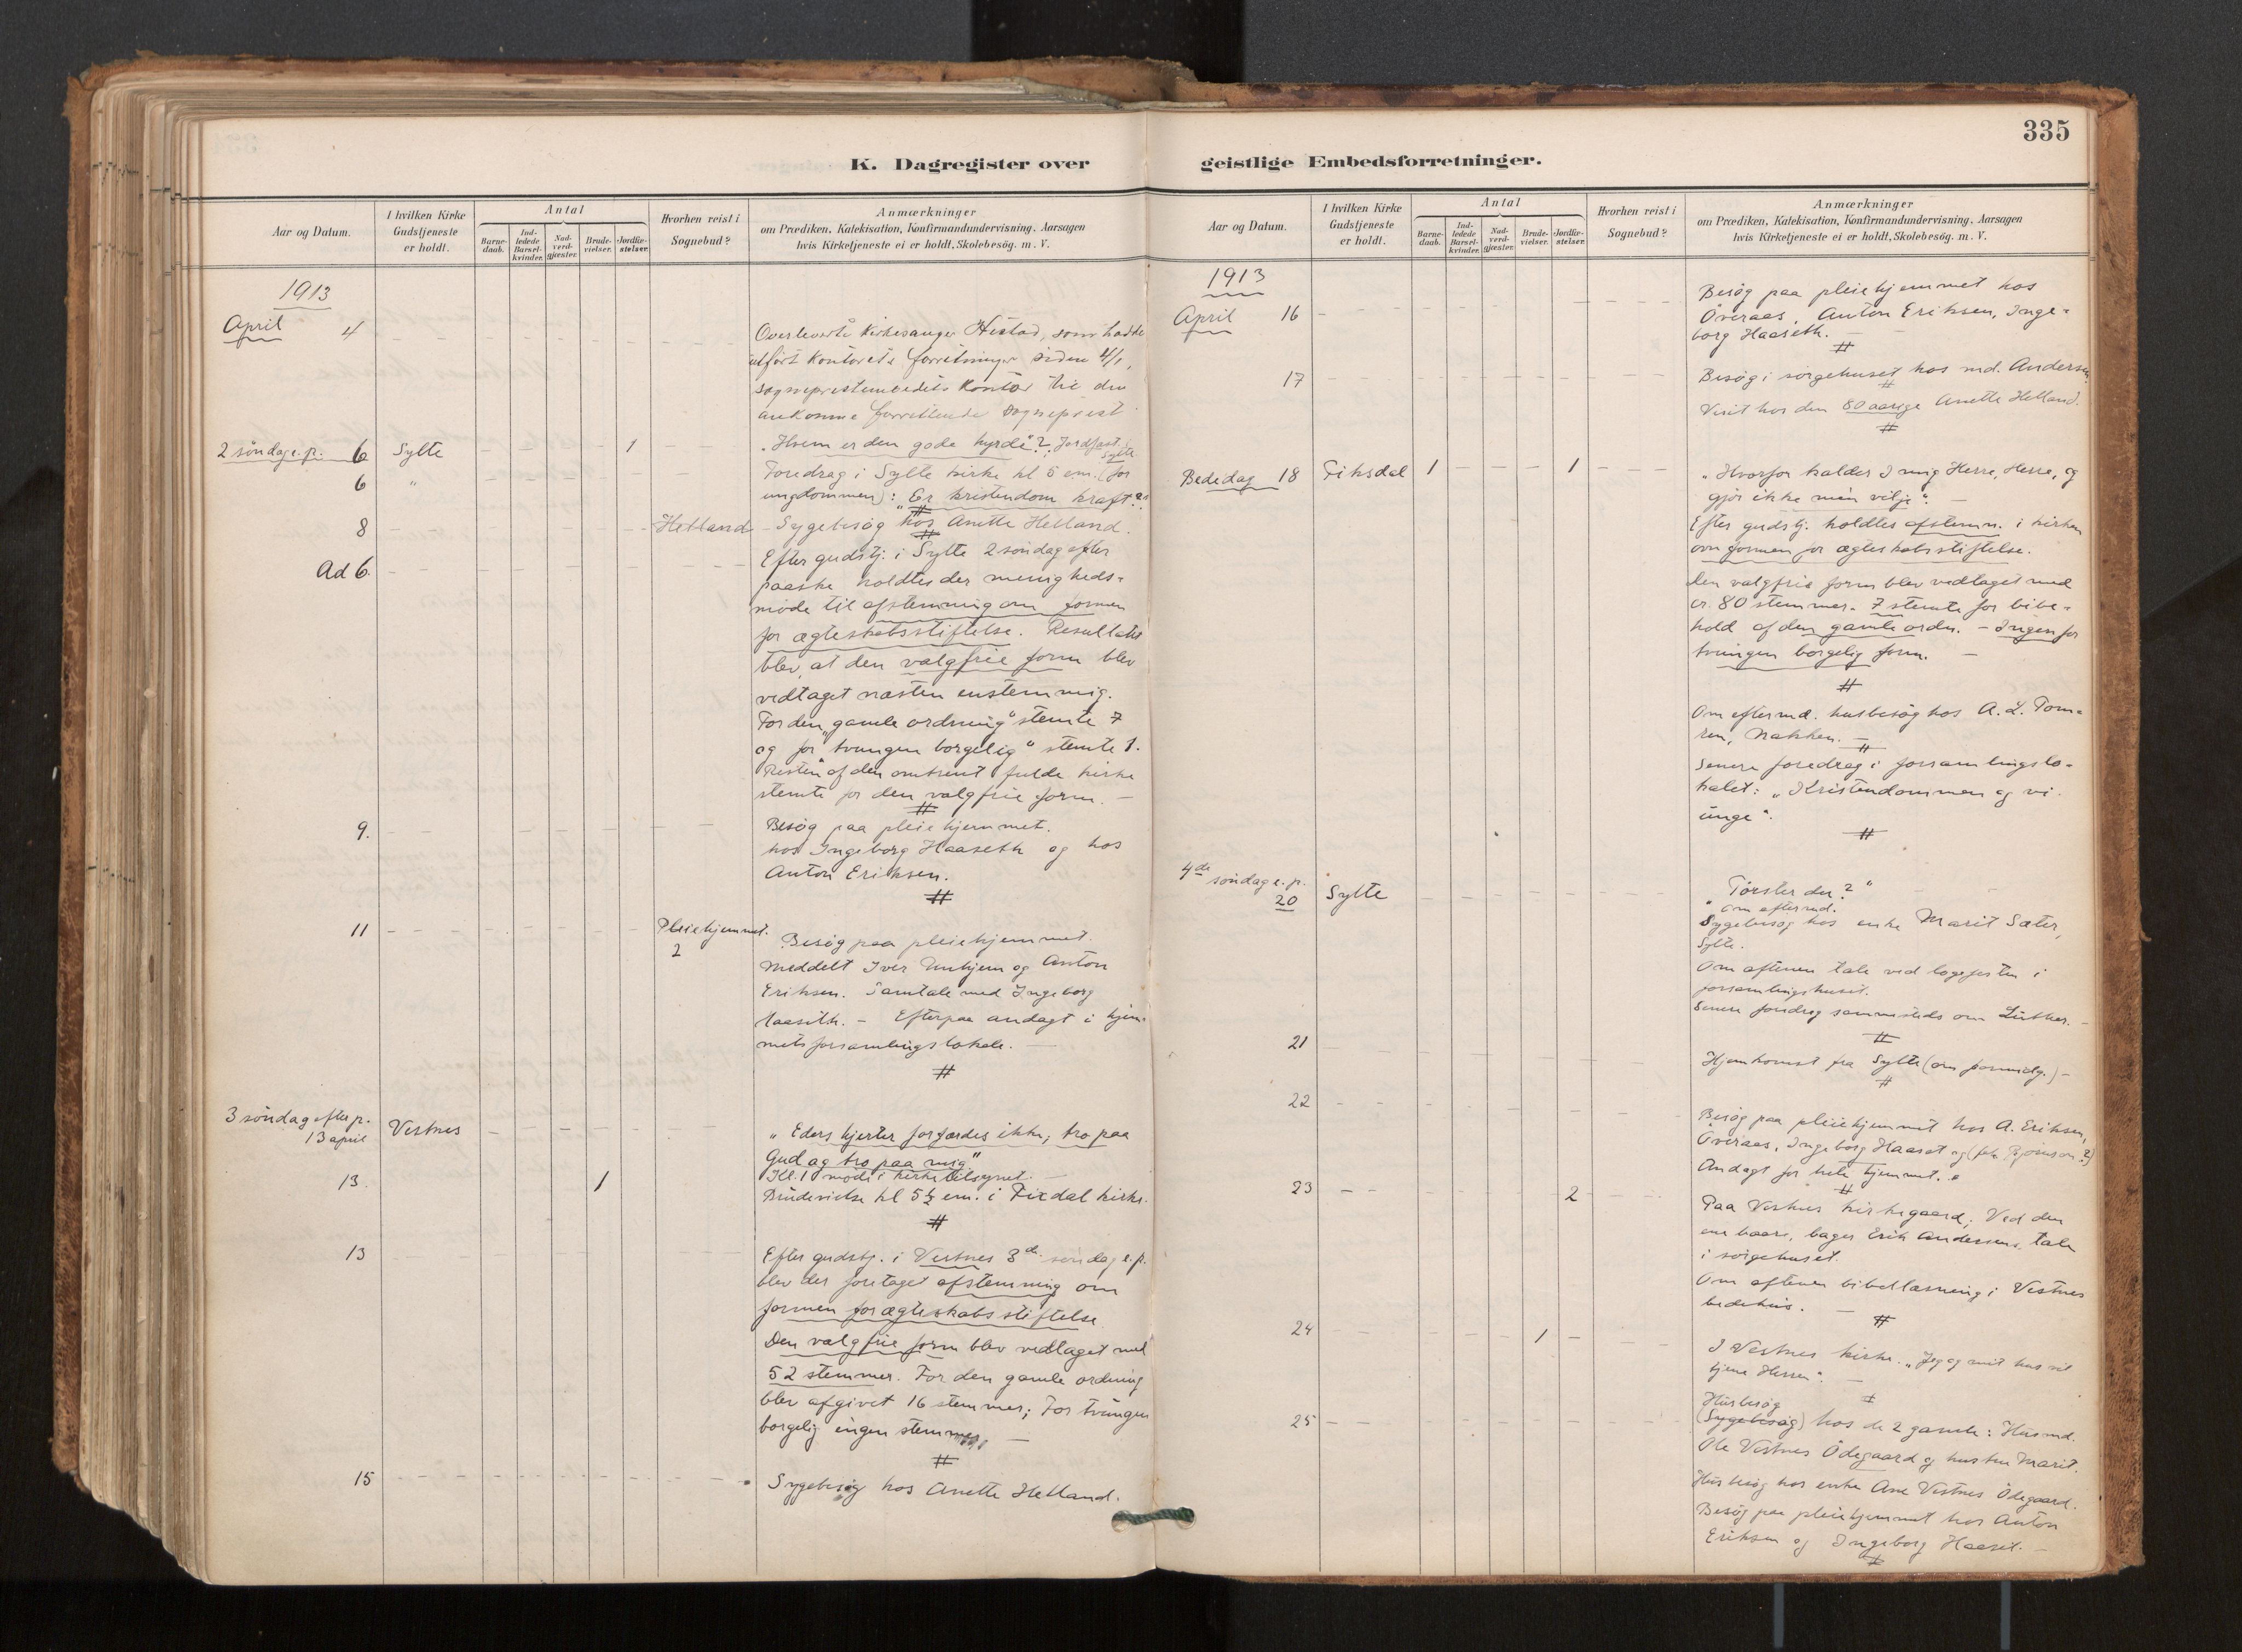 335
K. Dagregister over geistlige Embedsforretninger.
Aar og Datum.
I hvilken Kirke Gudstjeneste er holdt.
Antal
Barne-daab.
Ind-ledede Barsel-kvinder.
Nad-verd-gjæster.
Brude-vielser.
Jordfæ-stelser.
Hvorhen reist i Sognebud?
Anmærkninger
om Prædiken, Katekisation, Konfirmandundervisning. Aarsagen
hvis Kirketjeneste ei er holdt, Skolebesög. m. V.
1913
April 4
Overleverte kirkesanger Hestad, som hadde
utført kontorets forretninger siden 4/1,
sogneprestembedets kontor til den
ankomne forrettende sogneprest
2 söndag e. p. 6 Sylte 1 „Hvem er den gode hyrde"? Jordfæst. Sylte
6 " Foredrag i Sylte kirke kl 5 em. (for
ungdommen): „Er kristendom kraft?"
8 Helland Sygebesög hos Anette Helland.
Ad 6. Efter gudstj. i Sylte 2 söndag efter
paaske holdtes der menigheds-
möde til afstemning om formen
for ægteskabsstiftelse. Resultatet
blev, at den valgfrie form blev
vedtaget næsten enstemmig.
For den „gamle ordning" stemte 7
og for „tvungen borgelig" stemte 1.
Resten af den omtrent fulde kirke
stemte for den valgfrie form. –
9. Besög paa pleiehjemmet.
hos Ingeborg Haaseth og hos
Anton Eriksen.
11 Pleiehjemmet. 2 Besög paa pleiehjemmet.
Meddelt Iver Unhjem og Anton
Eriksen. Samtale med Ingeborg
Haaseth. – Efterpaa andagt i hjem-
mets forsamlingslokale. –
3 söndag efter p.
13 april Vestnes „Eders hjerter forfærdes ikke; tro paa
Gud og tro paa mig"
Kl. 1 möde i kirketilsynet. –
13. 1 Brudevielse kl 5½ em. i Fixdal kirke.
13 Efter gudstj. i Vestnes 3de söndag e. p.
blev der foretaget afstemning om
formen for ægteskabsstiftelse
Den valgfrie form blev vedtaget med
52 stemmer. For den gamle ordning
blev afgivet 16 stemmer; For tvungen
borgelig ingen stemmer –
15 Sygebesög hos Anette Helland.
Aar og Datum.
I hvilken Kirke Gudstjeneste er holdt.
Antal
Barne-daab.
Ind-ledede Barsel-kvinder.
Nad-verd-gjæster.
Brude-vielser.
Jordfæ-stelser.
Hvorhen reist i Sognebud?
Anmærkninger
om Prædiken, Katekisation, Konfirmandundervisning. Aarsagen
hvis Kirketjeneste ei er holdt, Skolebesög. m. V.
1913
April 16 Besög paa pleiehjemmet hos
Överaas, Anton Eriksen, Inge-
borg Haaseth. –
17 Besög i sörgehuset hos md. Andersen.
Visit hos den 80 aarige Anette Helland.
Bededag 18 Fiksdal 1 1 „Hvorfor kalder I mig Herre, Herre, og
gjör ikke min vilje". –
Efter gudstj. holdtes afstemn. i kirken
om formen for ægteskabsstiftelse.
Den valgfrie form blev vedtaget med
cr. 80 stemmer. 7 stemte for bibe-
hold af den gamle ordn. – Ingen for
tvungen borgelig form. –
Om eftermd. husbesög hos A. L. Tom-
ren, Nakken. –
Senere foredrag i forsamlingslo-
kalet: „Kristendommen og vi
unge".
4de söndag e. p.
20 Sylte „Törster du?"
Om eftermd.
Sygebesög hos enke Marit Sæter,
Sylte.
Om aftenen tale ved logefesten i
forsamlingshuset.
Senere foredrag sammesteds om Luther. –
21 Hjemkomst fra Sylte (om formidg.) –
22 Besög paa pleiehjemmet hos A. Eriksen,
Överaas, Ingeborg Haaset og
Andagt for hele hjemmet.
23 2 Paa Vestnes kirkegaard; Ved den
ene baare, bager Erik Andersens, tale
i sörgehuset.
Om aftenen bibellæsning i Vestnes
bedehus. –
24 1 I Vestnes kirke. „Jeg og mit hus vil
tjene Herren". –
25 Husbesög
(Sygebesög) hos de 2 gamle: Husmd.
Ole Vestnes Ödegaard og hustru Marit.
Husbesög hos enke Ane Vestnes Ödegaard.
Besög paa pleiehjemmet hos Anton
Eriksen og Ingeborg Haaset. –